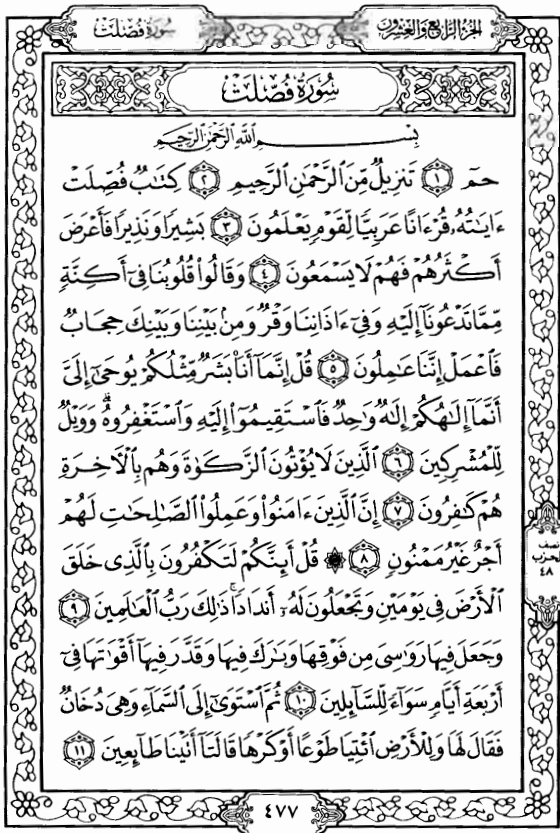 الجزء الرابع والعشرون
سورة فصلت
سُورَةُ فُصِّلَتْ
بِسْمِ اللَّهِ الرَّحْمَٰنِ الرَّحِيمِ
حمٓ ١ تَنزِيلٌ مِّنَ الرَّحْمَٰنِ الرَّحِيمِ ٢ كِتَابٌ فُصِّلَتْ
ءَايَٰتُهُۥ قُرْءَانًا عَرَبِيًّا لِّقَوْمٍ يَعْلَمُونَ ٣ بَشِيرًا وَنَذِيرًا فَأَعْرَضَ
أَكْثَرُهُمْ فَهُمْ لَا يَسْمَعُونَ ٤ وَقَالُوا۟ قُلُوبُنَا فِىٓ أَكِنَّةٍ
مِّمَّا تَدْعُونَآ إِلَيْهِ وَفِىٓ ءَاذَانِنَا وَقْرٌ وَمِنۢ بَيْنِنَا وَبَيْنِكَ حِجَابٌ
فَٱعْمَلْ إِنَّنَا عَٰمِلُونَ ٥ قُلْ إِنَّمَآ أَنَا۠ بَشَرٌ مِّثْلُكُمْ يُوحَىٰٓ إِلَىَّ
أَنَّمَآ إِلَٰهُكُمْ إِلَٰهٌ وَٰحِدٌ فَٱسْتَقِيمُوٓا۟ إِلَيْهِ وَٱسْتَغْفِرُوهُ ۗ وَوَيْلٌ
لِّلْمُشْرِكِينَ ٦ ٱلَّذِينَ لَا يُؤْتُونَ ٱلزَّكَوٰةَ وَهُم بِٱلْءَاخِرَةِ
هُمْ كَٰفِرُونَ ٧ إِنَّ ٱلَّذِينَ ءَامَنُوا۟ وَعَمِلُوا۟ ٱلصَّٰلِحَٰتِ لَهُمْ
أَجْرٌ غَيْرُ مَمْنُونٍ ٨ ۞ قُلْ أَئِنَّكُمْ لَتَكْفُرُونَ بِٱلَّذِى خَلَقَ
ٱلْأَرْضَ فِى يَوْمَيْنِ وَتَجْعَلُونَ لَهُۥٓ أَندَادًا ۚ ذَٰلِكَ رَبُّ ٱلْعَٰلَمِينَ ٩
وَجَعَلَ فِيهَا رَوَٰسِىَ مِن فَوْقِهَا وَبَٰرَكَ فِيهَا وَقَدَّرَ فِيهَآ أَقْوَٰتَهَا فِىٓ
أَرْبَعَةِ أَيَّامٍ سَوَآءً لِّلسَّآئِلِينَ ١٠ ثُمَّ ٱسْتَوَىٰٓ إِلَى ٱلسَّمَآءِ وَهِىَ دُخَانٌ
فَقَالَ لَهَا وَلِلْأَرْضِ ٱئْتِيَا طَوْعًا أَوْ كَرْهًا قَالَتَآ أَتَيْنَا طَآئِعِينَ ١١
نصف
الحزب
٤٨
٤٧٧